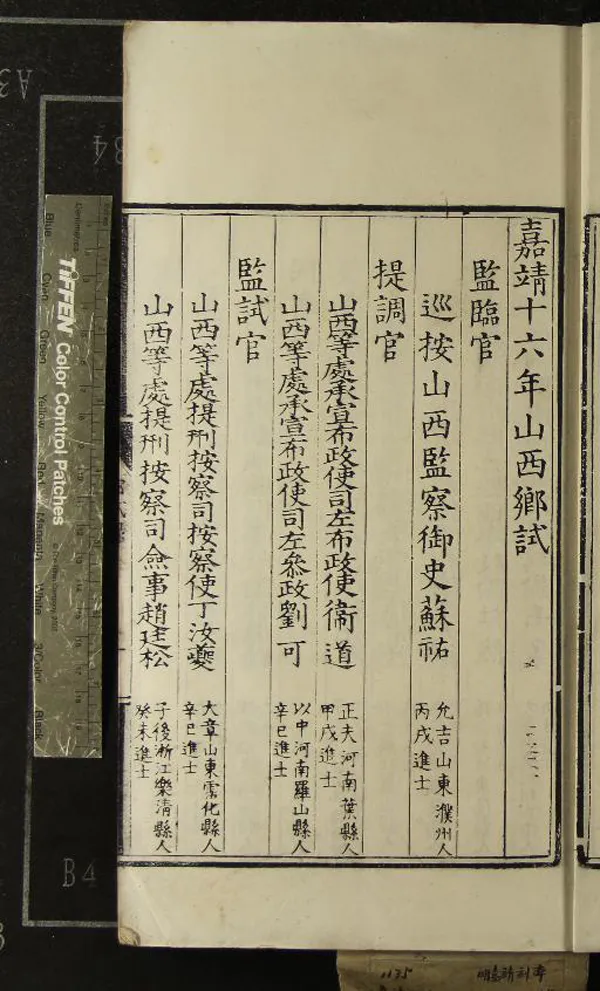 嘉靖十六年山西鄉試
監臨官
巡按山西監察御史蘇祐
允吉山東濮州人
丙戌進士
提調官
山西等處承宣布政使司左布政使衞道
正夫河南葉縣人
甲戌進士
山西等處承宣布政使司左叅政劉可
以中河南羅山縣人
辛巳進士
監試官
山西等處提刑按察司按察使丁汝夔
大章山東霑化縣人
辛巳進士
山西等處提刑按察司僉事趙廷松
子後浙江樂清縣人
癸未進士
TIFFEN Color Control Patches
Centimetres
Blue
Cyan
Green
Yellow
Red
Magenta
White
3/Color
Black
A3
B4
B4
1135